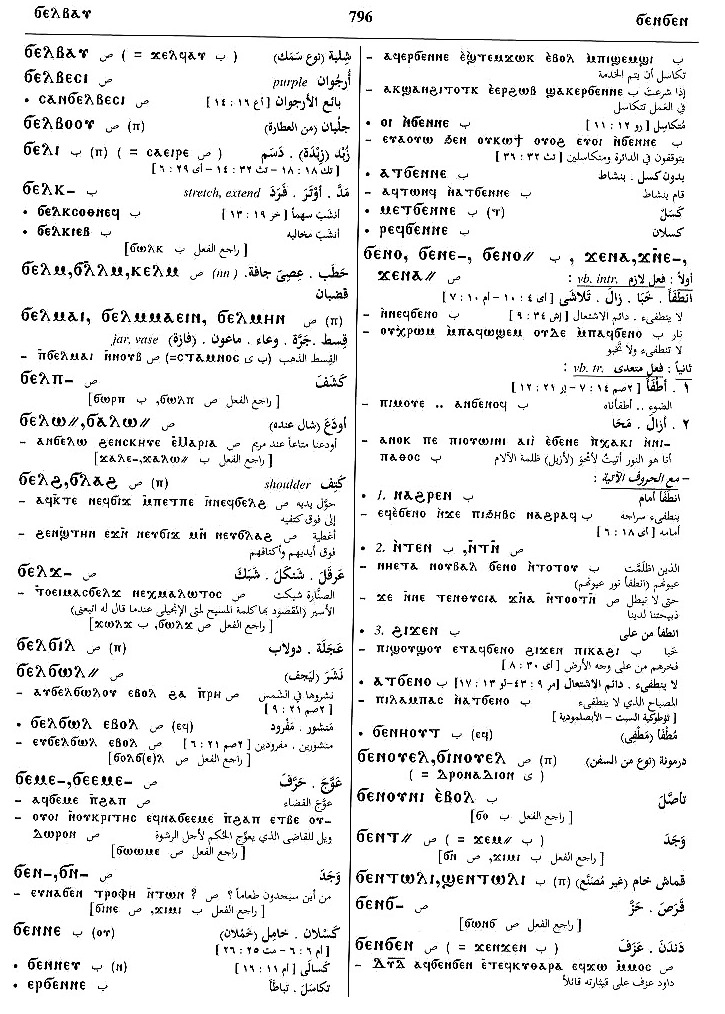 ϭⲉⲗⲃⲁⲩ 796 ϭⲉⲛϭⲉⲛ
ϭⲉⲗⲃⲁⲩ ص ( = ϫⲉⲗϥⲁⲩ ب ) شلبة (نوع سمك)
ϭⲉⲗⲃⲉⲥⲓ purple أرجوان
• ⲥⲁⲛϭⲉⲗⲃⲉⲥⲓ ص بائع الأرجوان [أع ١٦ : ١٤]
ϭⲉⲗⲃⲟⲟⲩ ص (ⲡ) جلبان (من العطارة)
ϭⲉⲗⲓ ب (ⲡ) ( = ⲥⲁⲉⲓⲣⲉ ص ) زُبْد (زبدة) . دَسَم
[تك ١٨ : ١٨ – تث ٣٢ : ١٤ – أى ٢٩ : ٦]
ϭⲉⲗⲕ- ب stretch, extend مَدَّ . أوْتَرَ . فَرَدَ
• ϭⲉⲗⲕⲥⲟⲑⲛⲉϥ ب أنشب سهماً [خر ١٩ : ١٣]
• ϭⲉⲗⲕⲓⲉⲃ ب أنشب مخالبه
[راجع الفعل ب ϭⲱⲗⲕ]
ϭⲉⲗⲙ,ϭⲗ̄ⲗⲙ,ⲕⲉⲗⲙ ص (ⲡⲡ) حَطَب . عِصِيّ جافة .
قضبان
ϭⲉⲗⲙⲁⲓ, ϭⲉⲗⲙⲙⲁⲉⲓⲛ, ϭⲉⲗⲙⲏⲓ ص (ⲡ)
jar, vase قِسط . جَرَّة . وعاء . ماعون . (فازة)
– ⲡ̄ϭⲉⲗⲙⲁⲓ ⲛ̄ⲛⲟⲩⲃ ص (=ⲥⲧⲁⲙⲛⲟⲥ ب ى) القسط الذهب
ϭⲉⲗⲡ- ص كَشَفَ
[راجع الفعل ص ϭⲱⲗⲡ, ب ϭⲱⲣⲡ]
ϭⲉⲗⲱ//,ϭⲁⲗⲱ// ص أودَعَ (شال عنده)
– ⲁⲛϭⲉⲗⲱ ϩⲉⲛⲥⲕⲏⲩⲉ ⲉ̀ⲙⲁⲣⲓⲁ ص أودعنا متاعاً عند مريم
[راجع الفعل ب ϫⲁⲗⲉ-,ϫⲁⲗⲱ//]
ϭⲉⲗϩ,ϭⲗⲁϩ ص (ⲡ) shoulder كتِف
– ⲁϥⲕ̄ⲧⲉ ⲛⲉϥϭⲓϫ ⲙ̄ⲡⲉⲧⲡⲉ ⲛ̄ⲛⲉϥϭⲉⲗϩ حوَّل يديه ص
إلى فوق كتفيه
– ϩⲉⲛϣ̄ⲧⲏⲛ ⲉϫⲛ̄ ⲛⲉⲩϭⲓϫ ⲙⲛ̄ ⲛⲉⲩϭⲗⲁϩ ص أغطية
فوق أيديهم وأكتافهم
ϭⲉⲗϫ- ص عَرقَلَ . شَنكَلَ . شَبَكَ
– ⲧ̄ⲟⲉⲓⲙⲁⲥϭⲉⲗϫ ⲡⲉⲭⲙⲁⲗⲱⲧⲟⲥ ص الصنَّارة شبكت
الأسير (المقصود بها كلمة المسيح لمتى الإنجيلى عندما قال له اتبعنى)
[راجع الفعل ص ϭⲱⲗϫ, ب ϫⲱⲗϫ]
ϭⲉⲗϭⲓⲗ ص (ⲡ) عَجَلَة . دولاب
ϭⲉⲗϭⲱⲗ// ص نَشَرَ (ليجف)
– ⲁⲩϭⲉⲗϭⲱⲗⲟⲩ ⲉⲃⲟⲗ ϩⲁ ⲡ̄ⲣⲏ ص نشروها في الشمس
[٢صم ٢١ : ٩]
• ϭⲉⲗϭⲱⲗ ⲉⲃⲟⲗ ص (ⲉϥ) منشور . مفرود
– ⲉⲩϭⲉⲗϭⲱⲗ ⲉⲃⲟⲗ ص منشورين . مفرودين [٢صم ٢١ : ٦]
[راجع الفعل ص ϭⲟⲗϭ(ⲉ)ⲗ]
ϭⲉⲙⲉ-,ϭⲉⲉⲙⲉ- ص عَوَّجَ . حَرَّفَ
– ⲁϥϭⲉⲙⲉ ⲡ̄ϩⲁⲡ ص عوَّج القضاء
– ⲟⲩⲟⲓ ⲛ̄ⲟⲩⲕⲣⲓⲧⲏⲥ ⲉϥⲛⲁϭⲉⲉⲙⲉ ⲡ̄ϩⲁⲡ ⲉⲧⲃⲉ ⲟⲩ-
ⲇⲱⲣⲟⲛ ص ويل للقاضى الذي يعوِّج الحكم لأجل الرشوة
[راجع الفعل ص ϭⲱⲱⲙⲉ]
ϭⲉⲛ-,ϭⲛ̄- ص وَجَدَ
– ⲉⲩⲛⲁϭⲉⲛ ⲧⲣⲟⲫⲏ ⲛ̄ⲧⲱⲛ ? ص من أين سيجدون طعاماً؟
[راجع الفعل ب ϫⲓⲙⲓ, ص ϭⲓⲛⲉ]
ϭⲉⲛⲛⲉ ب (ⲟⲩ) كَسْلان . خامِل (خملان)
[أم ٦ : ٦ – مت ٢٥ : ٢٦]
• ϭⲉⲛⲛⲉⲩ ب (ⲛ) كَسالَى [أم ١١ : ١٦]
• ⲉⲣϭⲉⲛⲛⲉ ب تكاسَلَ . تباطَأ
– ⲁϥⲉⲣϭⲉⲛⲛⲉ ⲉ̀ϣⲧⲉⲙϫⲱⲕ ⲉⲃⲟⲗ ⲙ̀ⲡⲓϣⲉⲙϣⲓ ب
تكاسل أن يتم الخدمة
– ⲁⲕϣⲁⲛϩⲓⲧⲟⲧⲕ ⲉⲉⲣϩⲱⲃ ϣⲁⲕⲉⲣϭⲉⲛⲛⲉ ب إذا شرعت
في العمل تتكاسل
• ⲟⲓ ⲛ̀ϭⲉⲛⲛⲉ ب مُتكاسل [رو ١٢ : ١١]
– ⲉⲩⲁⲟⲩⲱ ϧⲉⲛ ⲟⲩⲕⲱϯ ⲟⲩⲟϩ ⲉⲩⲟⲓ ⲛ̀ϭⲉⲛⲛⲉ ب
يتوقفون في الدائرة ومتكاسلين [تث ٣٢ : ٣٦]
• ⲁⲧϭⲉⲛⲛⲉ ب بدون كسل . بنشاط
– ⲁϥⲧⲱⲛϥ ⲛ̀ⲁⲧϭⲉⲛⲛⲉ ب قام بنشاط
• ⲙⲉⲧϭⲉⲛⲛⲉ ب (ⲧ) كَسَلٌ
• ⲣⲉϥϭⲉⲛⲛⲉ ب كسلان
ϭⲉⲛⲟ, ϭⲉⲛⲉ-, ϭⲉⲛⲟ// ب , ϫⲉⲛⲁ,ϫⲛ̄ⲉ-,
ϫⲉⲛⲁ// ص
أولاً : فعل لازم vb. intr. :
انطَفَأَ . خَبَا . زالَ . تَلاشَى [أى ٤ : ١٠ – أم ١٠ : ٧]
• ⲛ̀ⲛⲉϥϭⲉⲛⲟ ب لا ينطفىء . دائم الاشتعال [إش ٣٤ : ٩]
– ⲟⲩⲭⲣⲱⲙ ⲙ̀ⲡⲁϥⲱϣⲉⲙ ⲟⲩⲇⲉ ⲙ̀ⲡⲁϥϭⲉⲛⲟ ب نار
لا تنطفىء ولا تخبو
ثانياً : فعل متعدى vb. tr. :
١ . أطْفَأَ [٢صم ١٤ : ٧ – ٢١ : ١٢]
– ⲡⲓⲙⲟⲩⲉ .. ⲁⲛϭⲉⲛⲟϥ ب الضوء .. أطفأناه
٢ . أزالَ . مَحَا
– ⲁⲛⲟⲕ ⲡⲉ ⲡⲓⲟⲩⲱⲓⲛⲓ ⲁⲓⲓ̀ ⲉ̀ϭⲉⲛⲉ ⲡ̀ⲭⲁⲕⲓ ⲛ̀ⲛⲓ-
ⲡⲁⲑⲟⲥ ب أنا هو النور أتيتُ لأمحو (لأزيل) ظلمة الآلام
– مع الحروف الآتية :
• 1. ⲛⲁϩⲣⲉⲛ ب انطَفَأ أمام
– ⲉϥⲉ̀ϭⲉⲛⲟ ⲛ̀ϫⲉ ⲡⲓϧⲏⲃⲥ ⲛⲁϩⲣⲁϥ ب ينطفىء سراجه
أمامه [أى ١٨ : ٦]
• 2. ⲛ̀ⲧⲉⲛ ب ,ⲛ̄ⲧⲛ̄ ص
– ⲛⲏⲉⲧⲁ ⲛⲟⲩⲃⲁⲗ ϭⲉⲛⲟ ⲛ̀ⲧⲟⲧⲟⲩ ب الذين اظلَمَّت
عيونهم (انطفأ نور عيونهم)
– ϫⲉ ⲛ̄ⲛⲉ ⲧⲉⲛⲑⲩⲥⲓⲁ ϫⲛⲁ ⲛ̄ⲧⲟⲟⲧⲛ̄ ص حتى لا تبطل
ذبيحتنا لدينا
• 3. ϩⲓϫⲉⲛ ب انطفأ من على
– ⲡⲓϣⲟⲩϣⲟⲩ ⲉⲧⲁϥϭⲉⲛⲟ ϩⲓϫⲉⲛ ⲡⲓⲕⲁϩⲓ ب خبا
فخرهم من على وجه الأرض [أى ٣٠ : ٨]
• ⲁⲧϭⲉⲛⲟ ب لا ينطفىء . دائم الاشتعال [مر ٩ : ٤٣–لو ١٣ : ١٧]
– ⲡⲓⲗⲁⲙⲡⲁⲥ ⲛ̀ⲁⲧϭⲉⲛⲟ ب المصباح الذي لا ينطفىء
[ثؤطوكية السبت – الأبصلمودية]
• ϭⲉⲛⲏⲟⲩⲧ ب (ⲉϥ) مُطْفَأ (مَطْفِى)
ϭⲉⲛⲟⲩⲉⲗ,ϭⲓⲛⲟⲩⲉⲗ ص (ⲡ) درمونة (نوع من السفن)
( = ⲇⲣⲟⲛⲁⲇⲓⲟⲛ ى )
ϭⲉⲛⲟⲩⲛⲓ ⲉ̀ⲃⲟⲗ ب تأصَّلَ
[راجع الفعل ب ϭⲟ]
ϭⲉⲛⲧ// ص ( = ϫⲉⲙ// ب ) وَجَدَ
[راجع الفعل ب ϫⲓⲙⲓ, ص ϭⲛ̄]
ϭⲉⲛⲧⲱⲗⲓ,ϣⲉⲛⲧⲱⲗⲓ ب (ⲡ) قماش خام (غير مُصَنَّع)
ϭⲉⲛϭ- ص قَرَصَ . حَزَّ
[راجع الفعل ص ϭⲱⲛϭ]
ϭⲉⲛϭⲉⲛ ص ( = ϫⲉⲛϫⲉⲛ ب ) دَندَنَ . عَزَفَ
– ⲇⲁ̄ⲇ̄ ⲁϥϭⲉⲛϭⲉⲛ ⲉ̀ⲧⲉϥⲕⲩⲑⲁⲣⲁ ⲉϥϫⲱ ⲙ̄ⲙⲟⲥ ص
داود عزف على قيثارته قائلاً